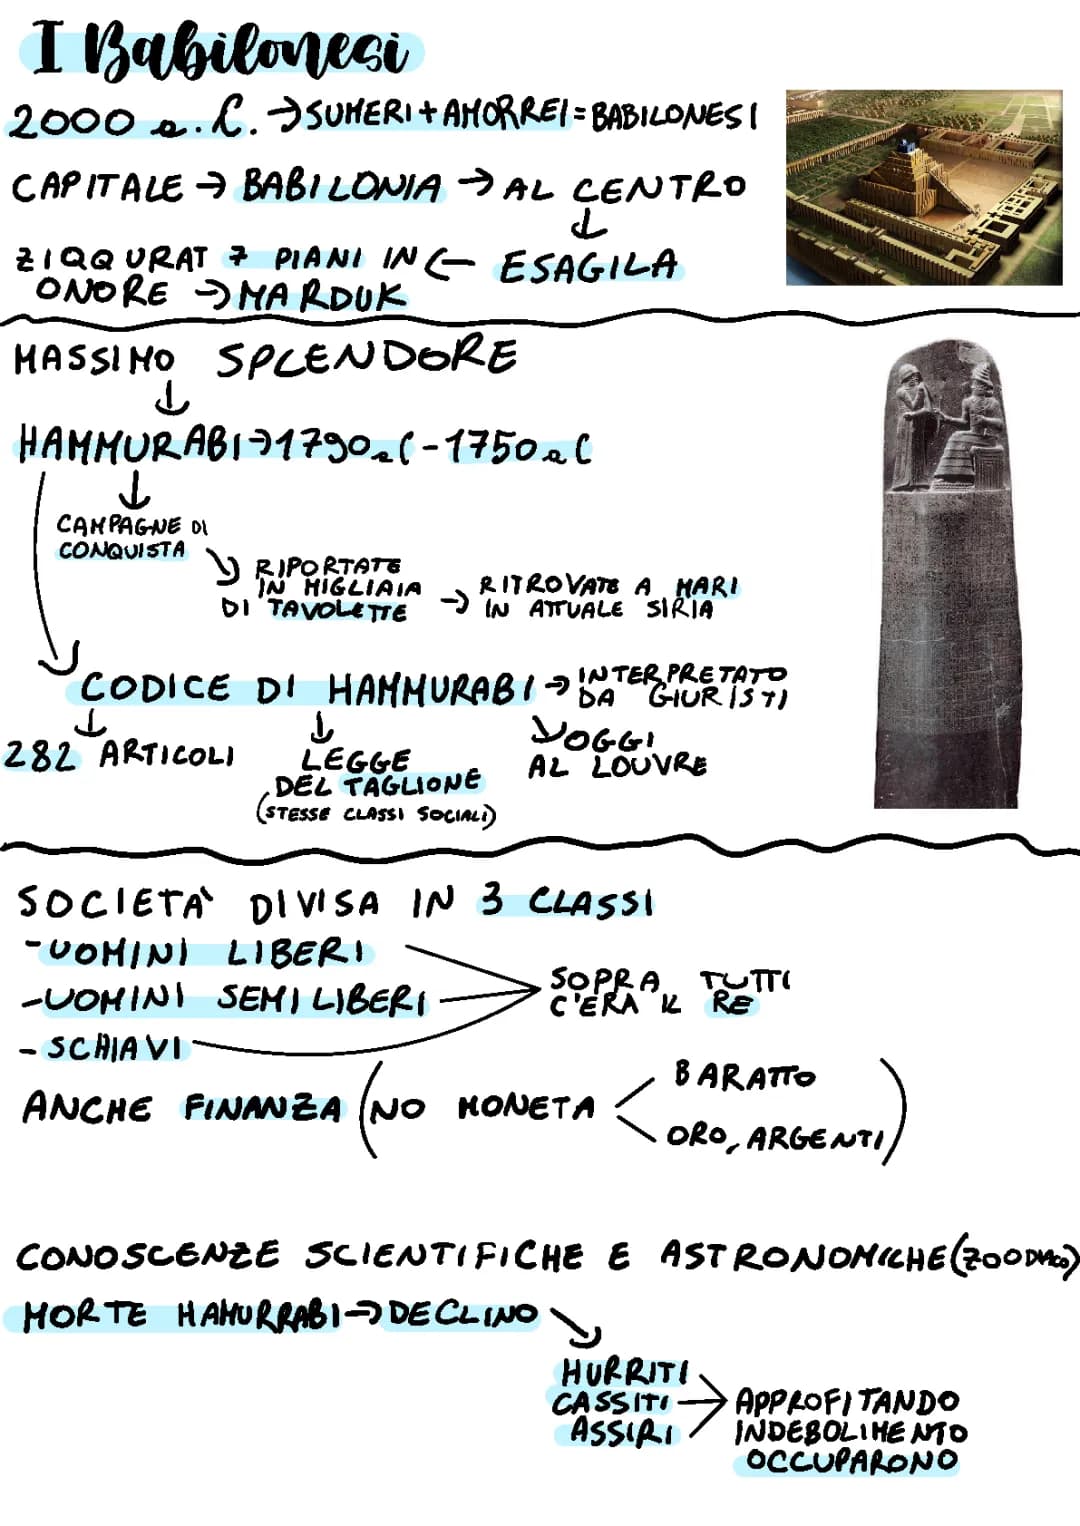 I Babilonesi
2000 a.C. → SUMERI + AMORREI = BABILONESI
CAPITALE → BABILONIA → AL CENTRO
↓
ZIQQURAT 7 PIANI IN ← ESAGILA
ONORE → MARDUK
MASSIMO SPLENDORE
↓
HAMMURABI → 1790 a C - 1750 a C
↓
CAMPAGNE DI
CONQUISTA
RIPORTATE
IN MIGLIAIA
DI TAVOLETTE
→ RITROVATE A MARI
IN ATTUALE SIRIA
CODICE DI HAMMURABI → INTERPRETATO
DA GIURISTI
282 ARTICOLI
LEGGE
DEL TAGLIONE
(STESSE CLASSI SOCIALI)
OGGI
AL LOUVRE
SOCIETA' DIVISA IN 3 CLASSI
- UOMINI LIBERI
- UOMINI SEMILIBERI
- SCHIAVI
SOPRA TUTTI
C'ERA IL RE
ANCHE FINANZA (NO MONETA
BARATTO
ORO, ARGENTI)
CONOSCENZE SCIENTIFICHE E ASTRONOMICHE (ZOODIACO)
MORTE HAMURRABI → DECLINO
HURRITI
CASSITI
ASSIRI
→ APPROFITANDO
INDEBOLIMENTO
OCCUPARONO